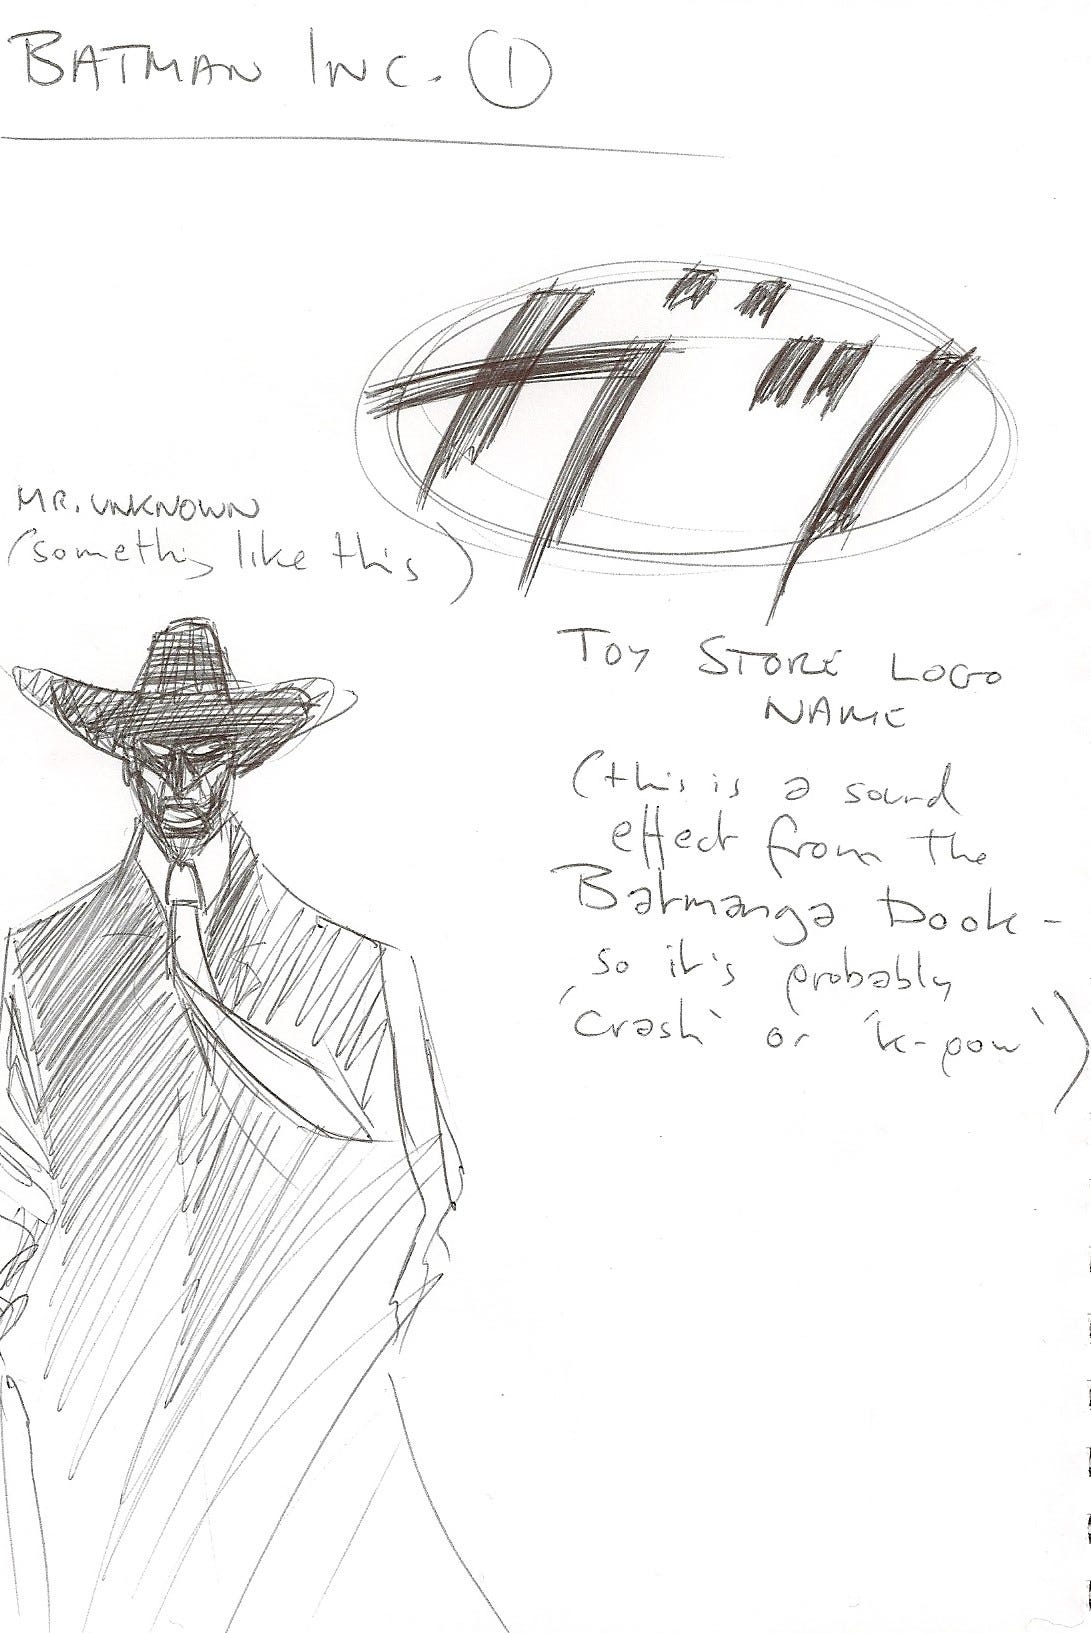 BATMAN INC. 1
ガッ
MR. UNKNOWN
(something like this)
TOY STORE LOGO
NAME
(this is a sound
effect from the
Batmanga Book -
so it's probably
'Crash' or 'k-pow')